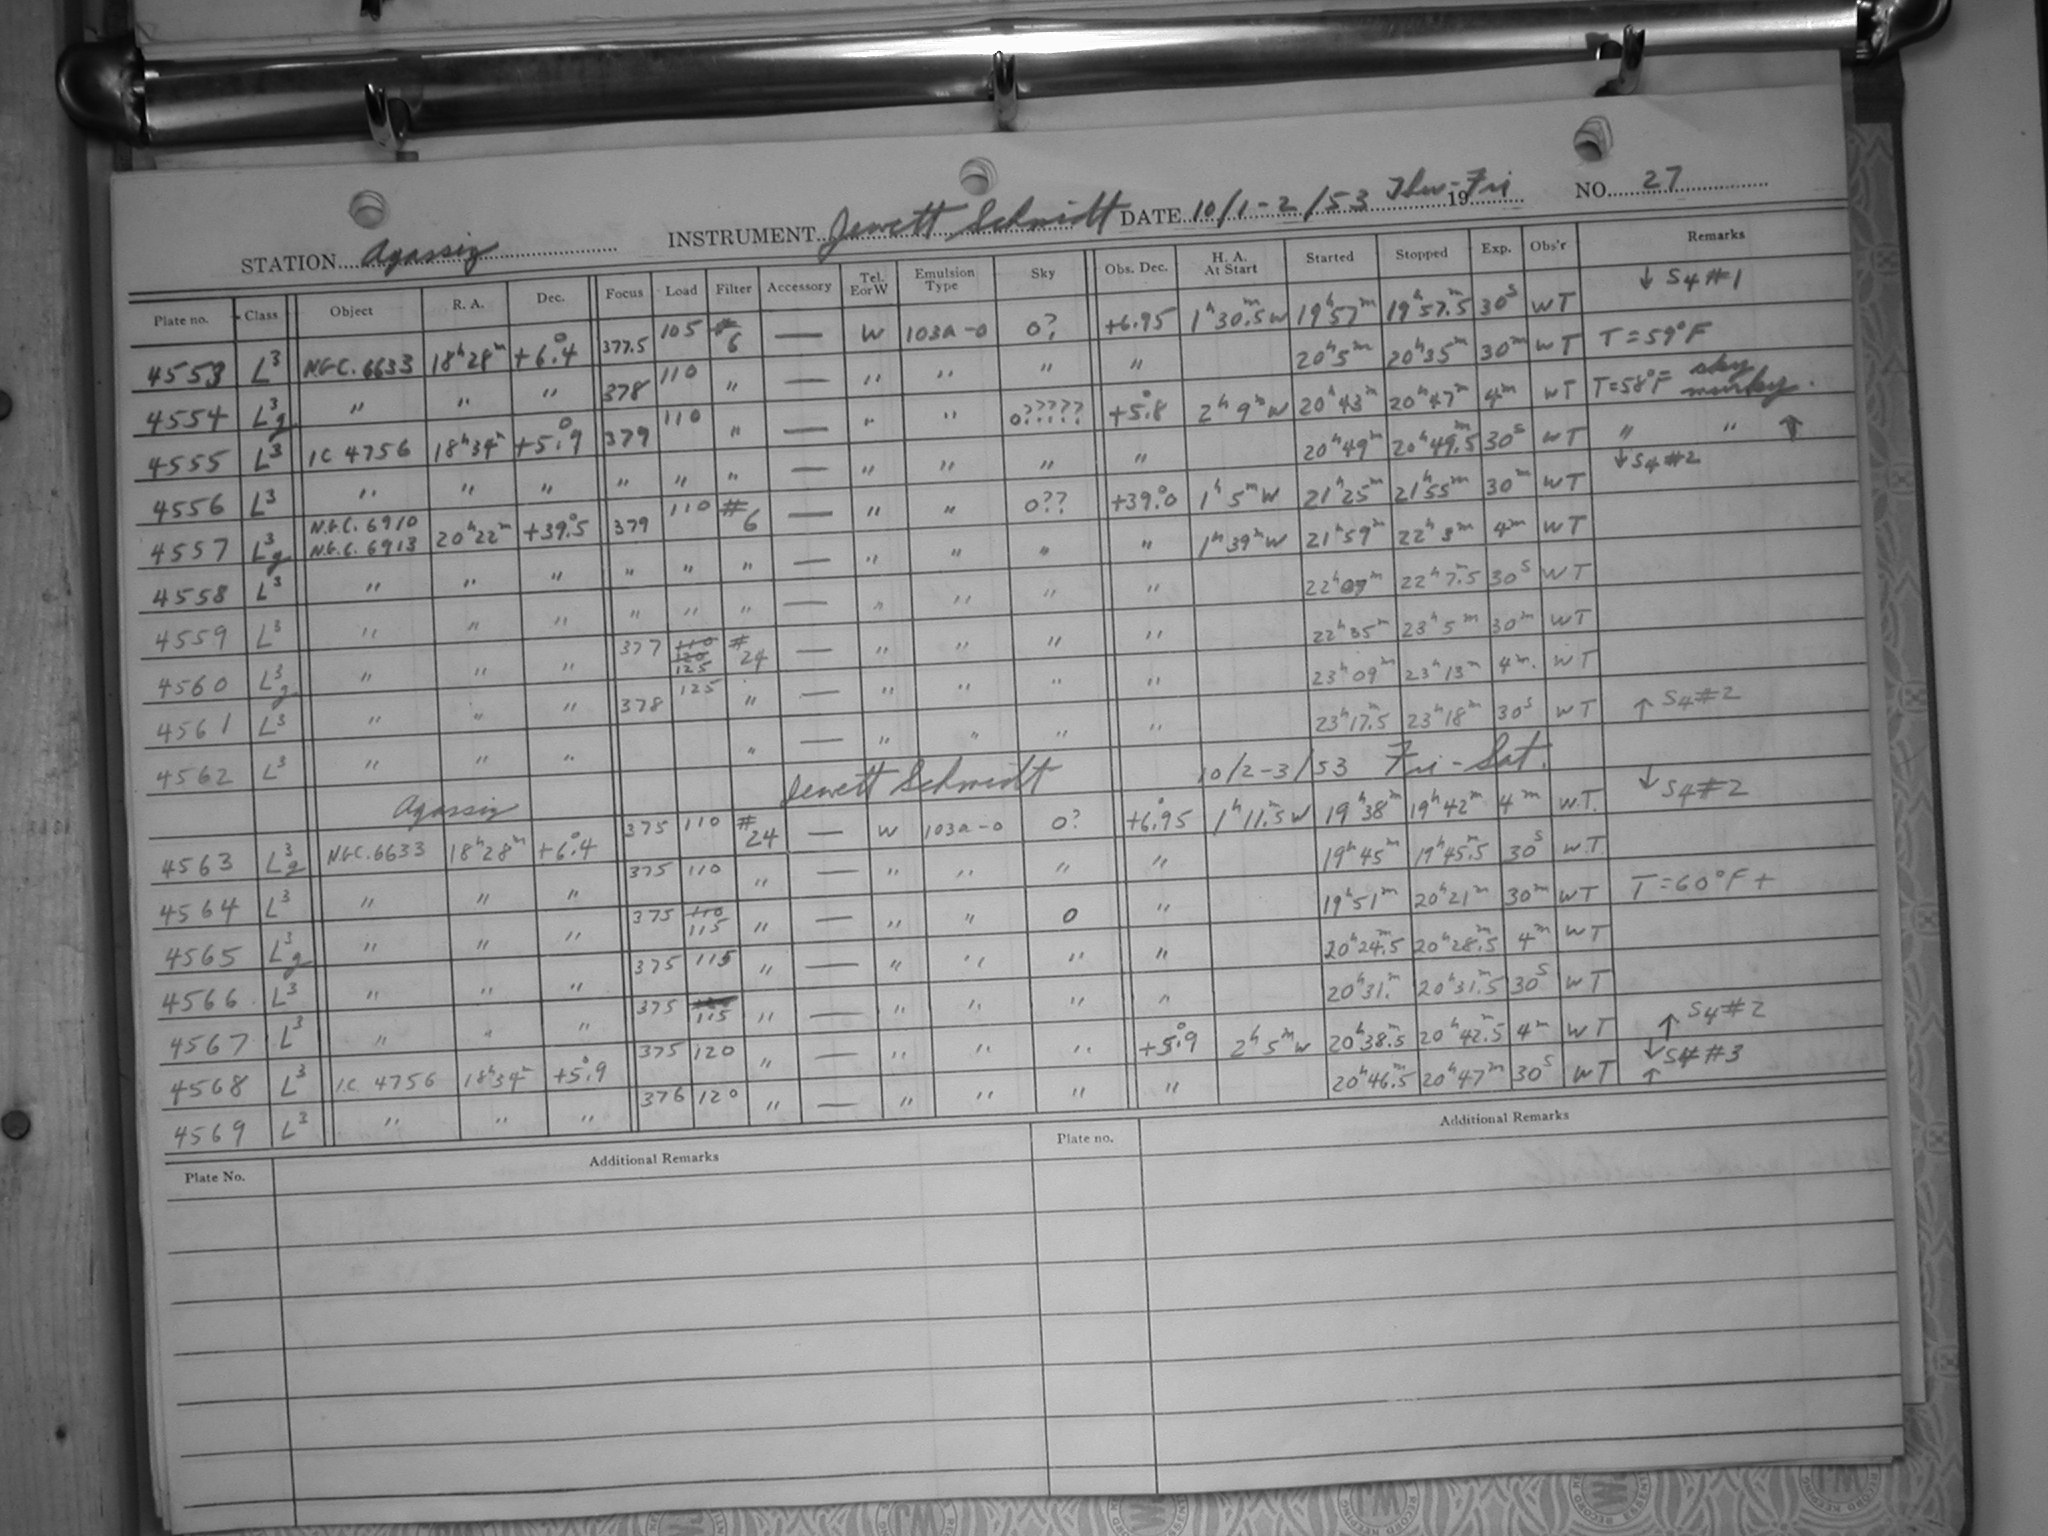 STATION Agassiz INSTRUMENT Jewett Schmidt DATE 10/1-2/53 Thu-Fri 19 NO. 27
Plate no. Class Object R. A. Dec. Focus Load Filter Accessory Tel. E or W Emulsion Type Sky Obs. Dec. H. A. At Start Started Stopped Exp. Obs'r Remarks
4553 L3 N.G.C. 6633 18h28m +6°.4 377.5 105 #6 — W 103a-o 0? +6.95 1h30.5m W 19h57m 19h57m.5 30s WT ↓ S4#1
4554 L3g " " " 378 110 " — " " " " 20h5m 20h35m 30m WT T=59°F
4555 L3 IC 4756 18h34m +5°.9 379 110 " — " " 0????? +5°.8 2h9m W 20h43m 20h47m 4m WT T=58°F sky murky.
4556 L3 " " " " " " — " " " " 20h49m 20h49m.5 30s WT " " ↑
4557 L3g N.G.C. 6910 N.G.C. 6913 20h22m +39°.5 379 110 #6 — " " 0?? +39°.0 1h5m W 21h25m 21h55m 30m WT ↓ S4#2
4558 L3 " " " " " " — " " " " 1h39m W 21h59m 22h3m 4m WT
4559 L3 " " " " " " — " " " " 22h07m 22h7m.5 30s WT
4560 L3g " " " 377 110 120 125 #24 — " " " " 22h35m 23h5m 30m WT
4561 L3 " " " 378 125 " — " " " " 23h09m 23h13m 4m. WT
4562 L3 " " " " — " " " " 23h17m.5 23h18m 30s WT ↑ S4#2
Agassiz Jewett Schmidt 10/2-3/53 Fri-Sat.
4563 L3g N.G.C. 6633 18h28m +6°.4 375 110 #24 — W 103a-o 0? +6°.95 1h11m.5 W 19h38m 19h42m 4m W.T. ↓ S4#2
4564 L3 " " " 375 110 " — " " " " 19h45m 19h45m.5 30s W.T
4565 L3g " " " 375 110 115 " — " " 0 " 19h51m 20h21m 30m WT T=60°F+
4566 L3 " " " 375 115 " — " " " " 20h24m.5 20h28m.5 4m WT
4567 L3 " " " 375 115 " — " " " " 20h31m 20h31m.5 30s WT
4568 L3 I.C. 4756 18h34m +5°.9 375 120 " — " " " +5°.9 2h5m W 20h38m.5 20h42m.5 4m WT ↑ S4#2
4569 L3 " " " 376 120 " — " " " " 20h46m.5 20h47m 30s WT ↓ S4#3 ↑
Plate No. Additional Remarks Plate no. Additional Remarks